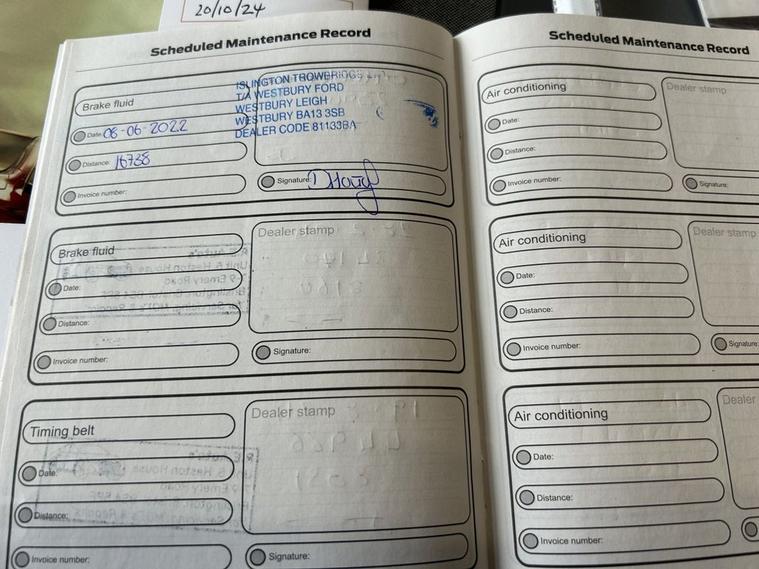 20/10/24
Scheduled Maintenance Record
Brake fluid
ISLINGTON TROWBRIDGE
T/A WESTBURY FORD
WESTBURY LEIGH
WESTBURY BA13 3SB
DEALER CODE 81133BA
Date: 08-06-2022
Distance: 16738
Invoice number:
Signature:
Brake fluid
Dealer stamp
Date:
Distance:
Invoice number:
Signature:
Timing belt
Dealer stamp
Date:
Distance:
Invoice number:
Signature:
Scheduled Maintenance Record
Air conditioning
Dealer stamp
Date:
Distance:
Invoice number:
Signature:
Air conditioning
Dealer stamp
Date:
Distance:
Invoice number:
Signature
Air conditioning
Dealer
Date:
Distance:
Invoice number: